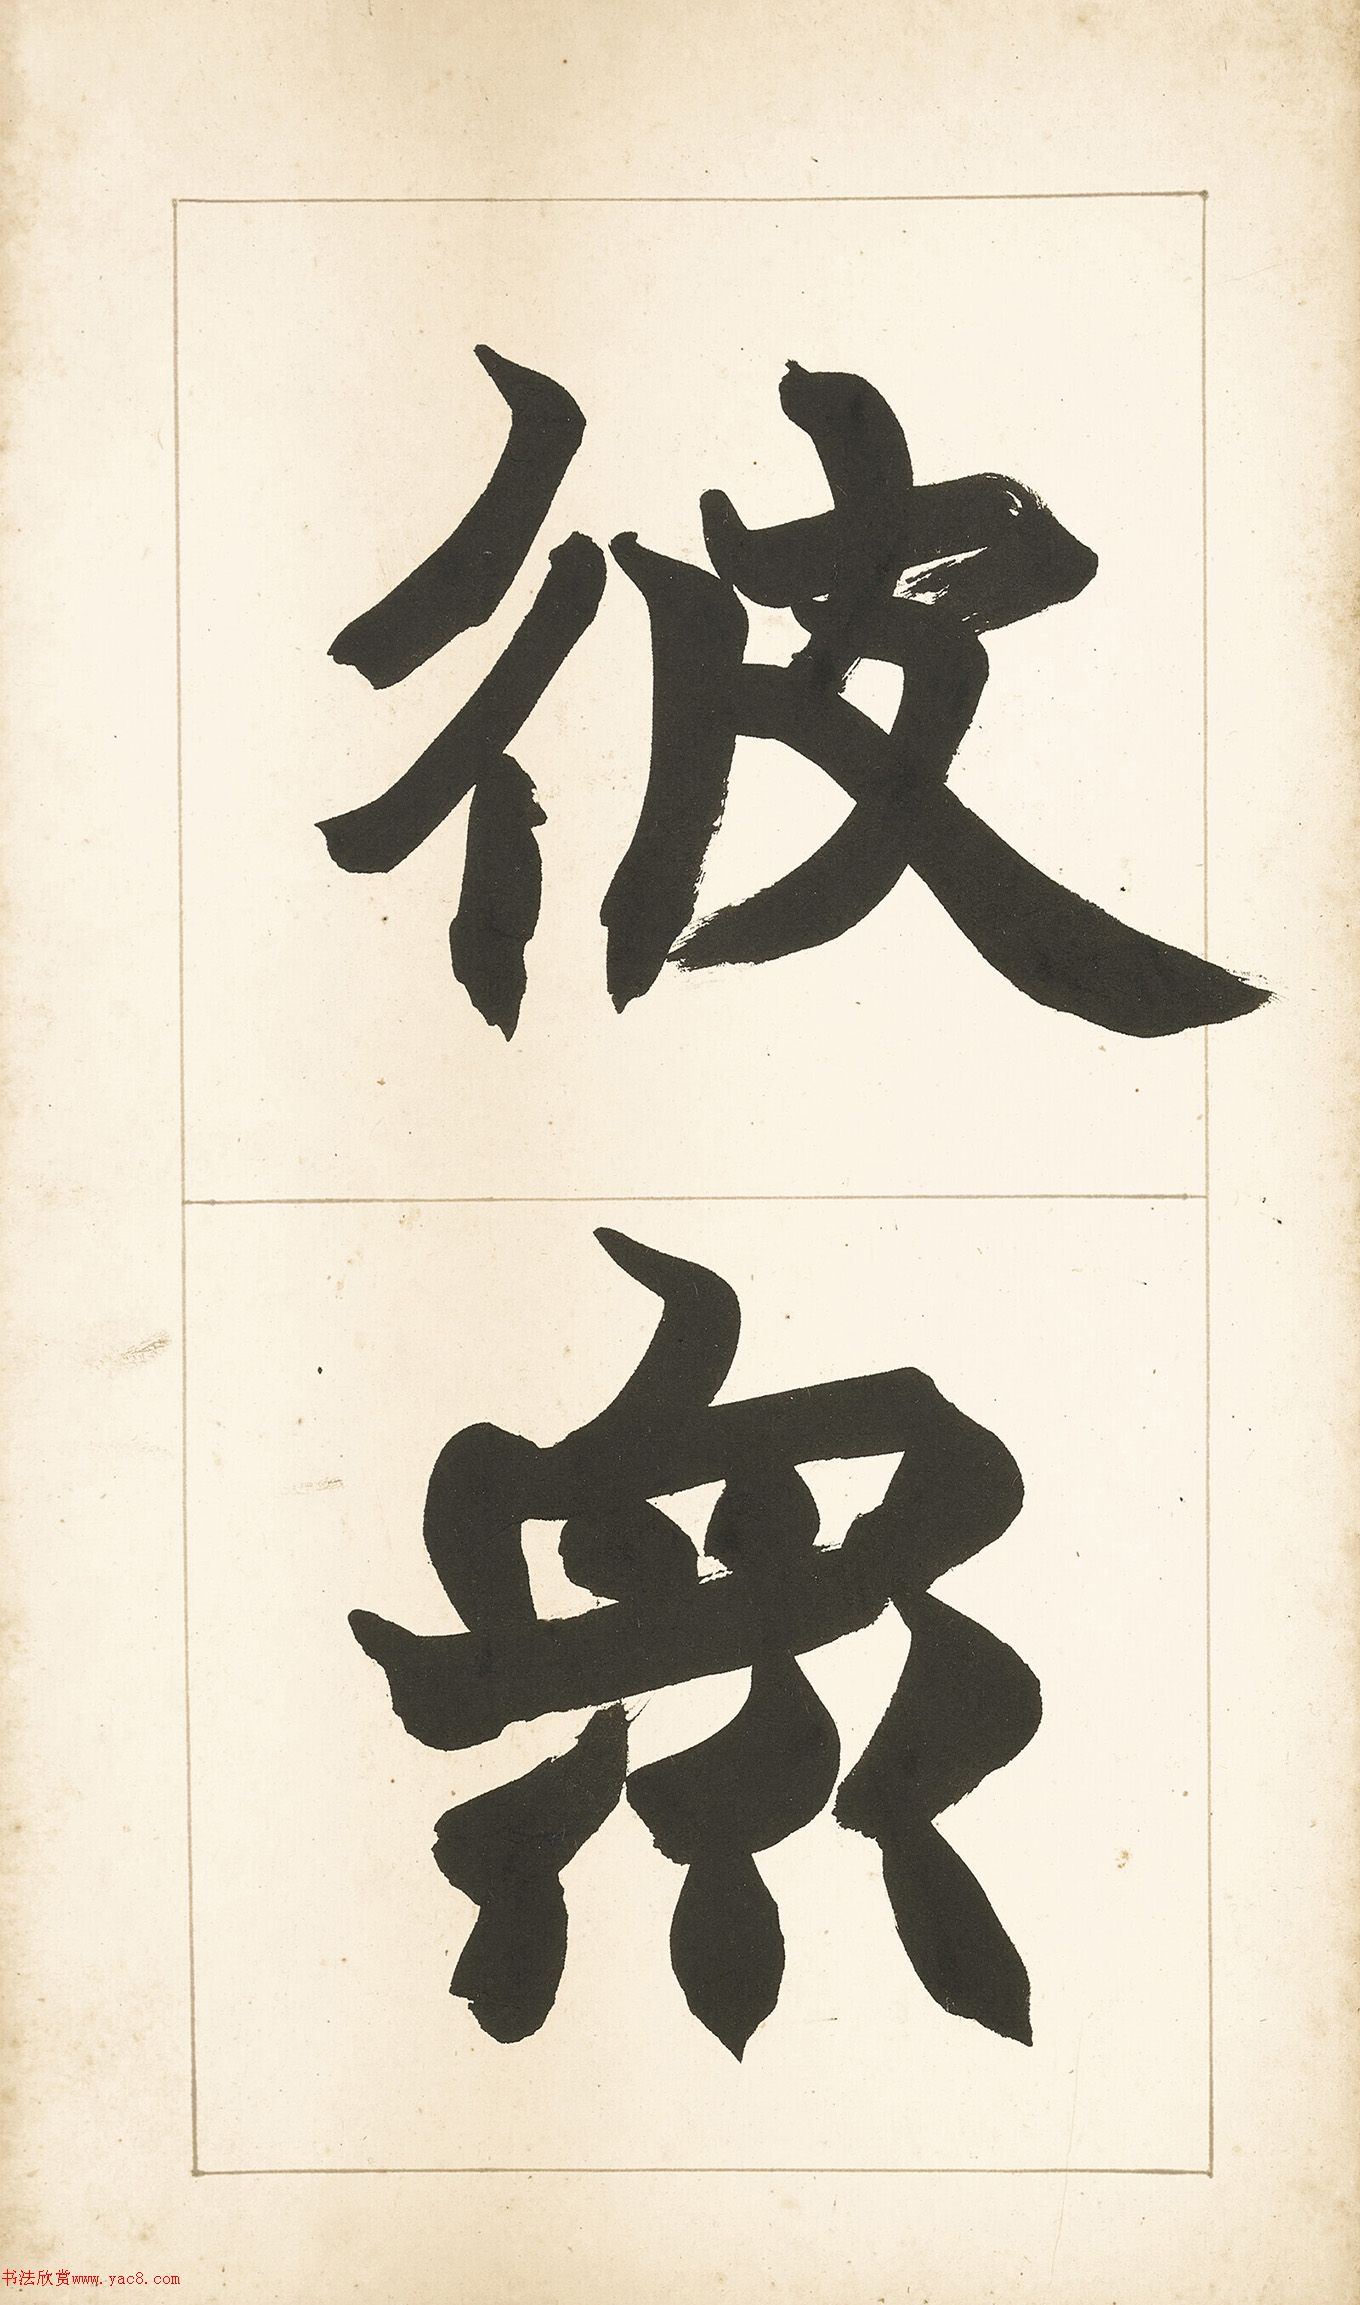 彼
衆
书法欣赏www.yac8.com